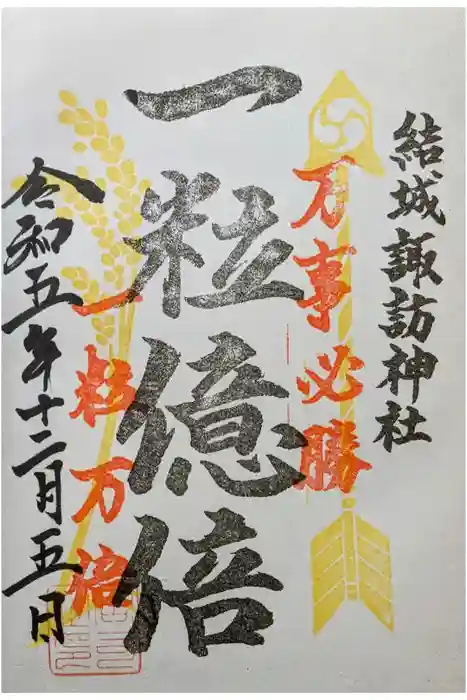 結城諏訪神社
万事必勝
一粒億倍
一粒万倍
令和五年十二月五日